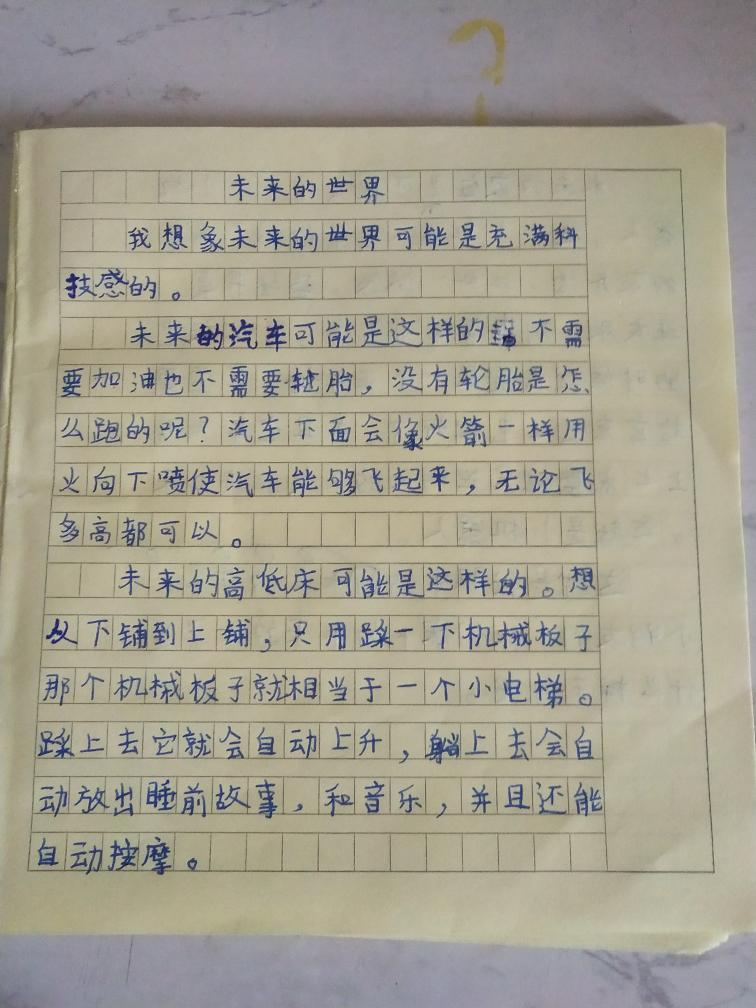 未来的世界
我想象未来的世界可能是充满科
技感的。
未来的汽车可能是这样的不需
要加油也不需要轮胎，没有轮胎是怎
么跑的呢？汽车下面会像火箭一样用
火向下喷使汽车能够飞起来，无论飞
多高都可以。
未来的高低床可能是这样的。想
从下铺到上铺，只用踩一下机械板子
那个机械板子就相当于一个小电梯。
踩上去它就会自动上升，躺上去会自
动放出睡前故事，和音乐，并且还能
自动按摩。